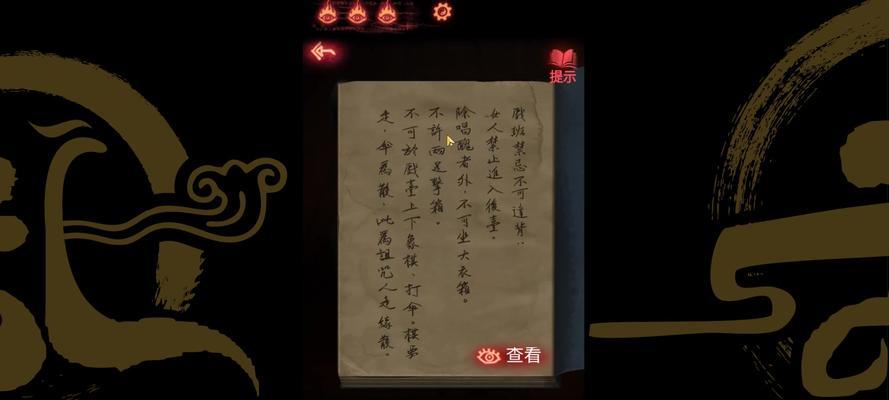 提示
戲班禁忌不可違背：
女人禁止進入後臺。
除唱醜者外，不可坐大衣箱。
不許兩足擊箱。
不可於戲臺上下象棋、打傘。棋要
走，傘為散，此為詛咒人走緣散。
查看